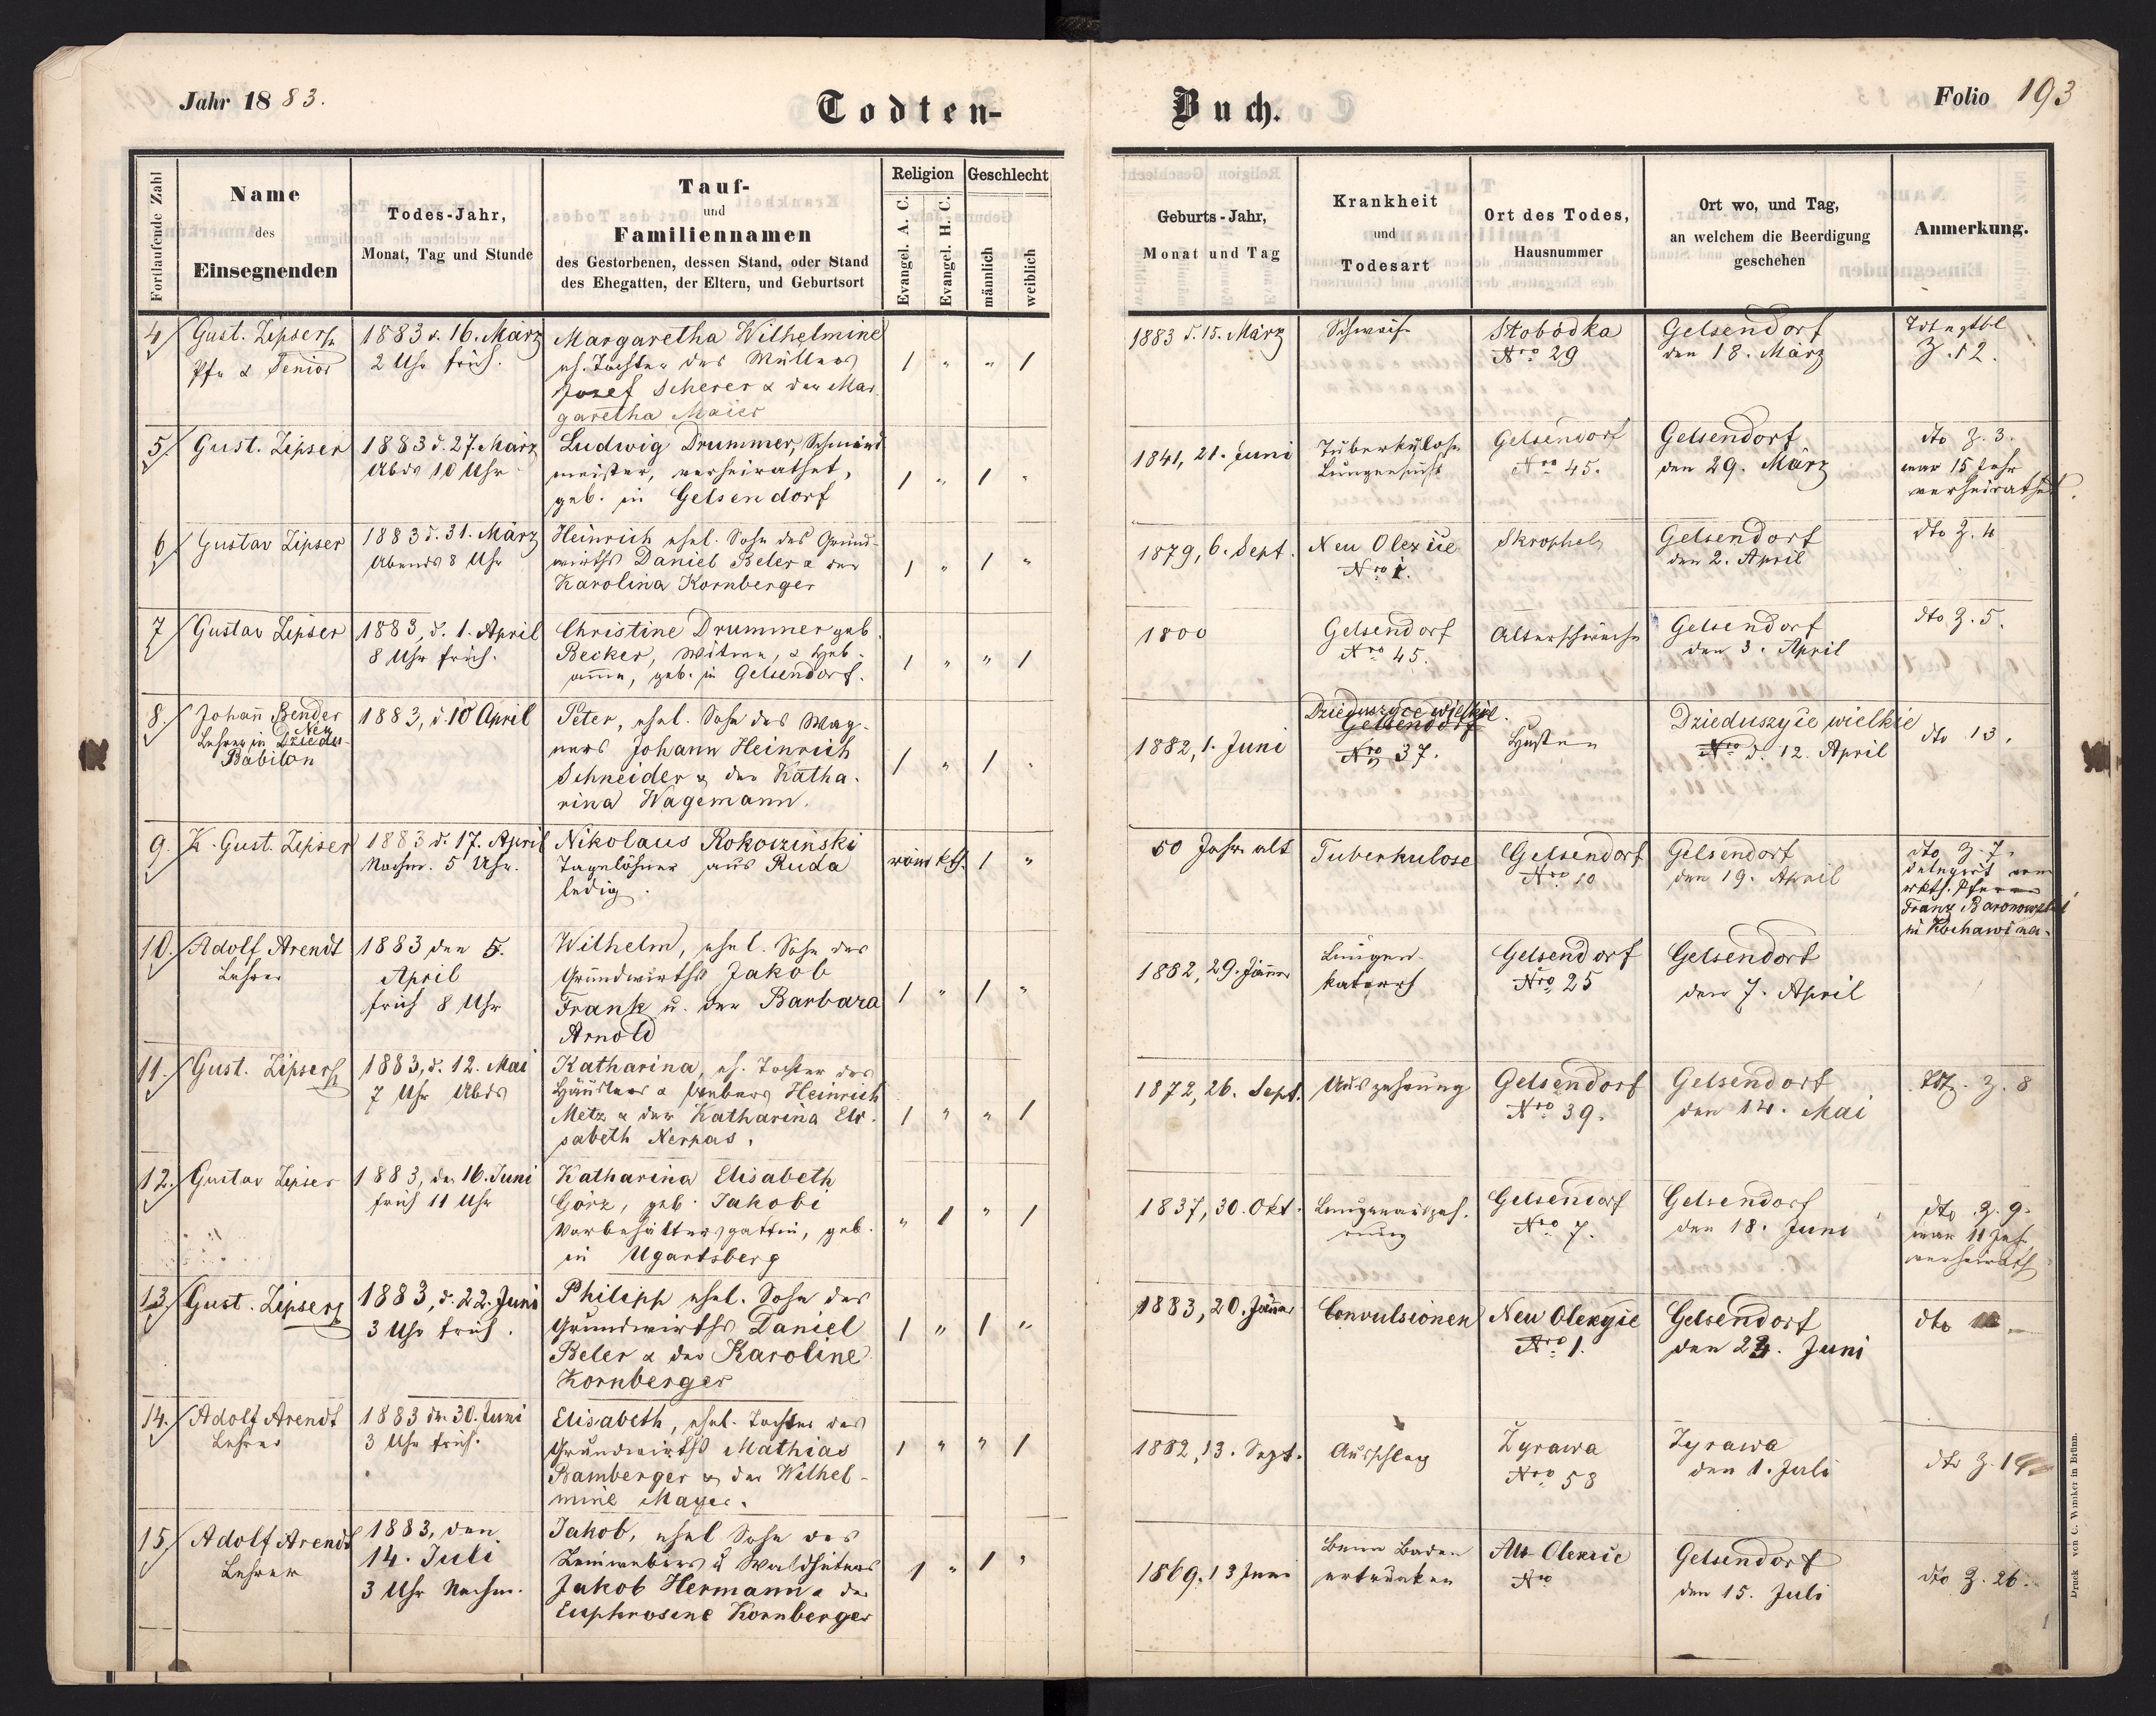 Jahr 1883.
Todten-
Buch.
Folio 193
Fortlaufende Zahl
Name
des
Einsegnenden
Todes-Jahr,
Monat, Tag und Stunde
Tauf-
und
Familiennamen
des Gestorbenen, dessen Stand, oder Stand
des Ehegatten, der Eltern, und Geburtsort
Religion
Evangel. A. C.
Evangel. H. C.
Geschlecht
männlich
weiblich
Geburts-Jahr,
Monat und Tag
Krankheit
und
Todesart
Ort des Todes,
Hausnummer
Ort wo, und Tag,
an welchem die Beerdigung
geschehen
Anmerkung.
4/
Gust. Zipser
Pfr & Senior
1883 d. 16. März
2 Uhr früh.
Margaretha Wilhelmine
eh. Tochter des Müllers
Josef Scherer & der Mar
garetha Maier
1 " " 1
1883 d. 15. März
Schwäche
Stobodka
Nro 29
Gelsendorf
den 18. März
Z. 12.
5/
Gust. Zipser
1883 d. 27. März
Abds 10 Uhr
Ludwig Drummer, Schmied
meister, verheirathet,
geb. in Gelsendorf
1 " 1 "
1841, 21. Juni
Tuberkulose
Lungensucht
Gelsendorf
Nro 45.
Gelsendorf
den 29. März
dto Z. 3.
war 15 Jahr
verheirathet.
6/
Gustav Zipser
1883 d. 31. März
Abends 8 Uhr
Heinrich ehel. Sohn des Grund-
wirths Daniel Beler & der
Karolina Kornberger
1 " 1 "
1879, 6. Sept.
Neu Olexice
Nro 1.
Skropheln
Gelsendorf
den 2. April
dto Z. 4
7/
Gustav Zipser
1883, d. 1. April
8 Uhr früh.
Christine Drummer geb.
Becker, Witwe, & Heb-
amme, geb. in Gelsendorf.
1 " " 1
1800
Gelsendorf
Nro 45.
Altersschwäche
Gelsendorf
den 3. April
dto Z. 5.
8/
Johann Bender
Lehrer in Neu
Babilon
1883, d. 10 April
Peter, ehel. Sohn des Wag-
ners Johann Heinrich
Schneider & der Katha-
rina Wagemann.
1 " 1 "
1882, 1. Juni
Dzieduszyce wielkie.
Gelsendorf
Nro 37.
Husten
Dzieduszyce wielkie
Nro d. 12. April
dto 13.
9.
K. Gust. Zipser
1883 d. 17. April
Nachm. 5 Uhr.
Nikolaus Rokoszinski
Tagelöhner aus Ruda
ledig.
röm kth. 1 "
50 Jahr alt
Tuberkulose
Gelsendorf
Nro 20
Gelsendorf
den 19. April
dto Z. 7.
delegirt vom
rkth. Pfarrer
Franz Baronowski
in Kochawina.
10.
Adolf Arendt
Lehrer
1883 den 5.
April
früh 8 Uhr
Wilhelm, ehel. Sohn des
Grundwirths Jakob
Frank u. der Barbara
Arnold
1 " 1 "
1882, 29. Jänner
Lungen-
katarrh
Gelsendorf
Nro 25
Gelsendorf
den 7. April
11.
Gust. Zipser
1883, d. 12. Mai
7 Uhr Abds
Katharina, eh. Tochter des
Häuslers & Webers Heinrich
Metz & der Katharina Eli-
sabeth Nerpas.
1 " " 1
1872, 26. Sept.
Auszehrung
Gelsendorf
Nro 39.
Gelsendorf
den 14. Mai
Z. 8
12.
Gustav Zipser
1883, den 16. Juni
früh 11 Uhr
Katharina Elisabeth
Görz, geb. Jakobi
Vorbehältersgattin, geb.
in Ugartsberg
" 1 " 1
1837, 30. Okt.
Lungenauszeh-
rung
Gelsendorf
Nro 7.
Gelsendorf
den 18. Juni
dto Z. 9.
war 11 Jahr
verheirath
13.
Gust. Zipser
1883, d. 22. Juni
3 Uhr früh.
Philipp ehel. Sohn des
Grundwirths Daniel
Beler & der Karoline
Kornberger
1 " 1 "
1883, 20. Jänner
Convulsionen
Neu Olexyce
Nro 1.
Gelsendorf
den 24. Juni
dto
14.
Adolf Arendt
Lehrer
1883 den 30. Juni
3 Uhr früh.
Elisabeth, ehel. Tochter des
Grundwirths Mathias
Bamberger & der Wilhel-
mine Mayer.
1 " " 1
1882, 13. Sept.
Ausschlag
Żyrawa
Nro 58
Zyrawa
den 1. Juli
dto Z. 14
15/
Adolf Arendt
Lehrer
1883, den
14. Juli
3 Uhr Nachm.
Jakob, ehel Sohn des
Leinwebers u Waldhüters
Jakob Hermann & der
Euphrosine Kornberger
1 " 1 "
1869. 13 Juni
Beim Baden
ertrunken
Alt-Olexice
Nro
Gelsendorf
den 15. Juli
dto Z. 26.
Druck von C. Winiker in Brünn.